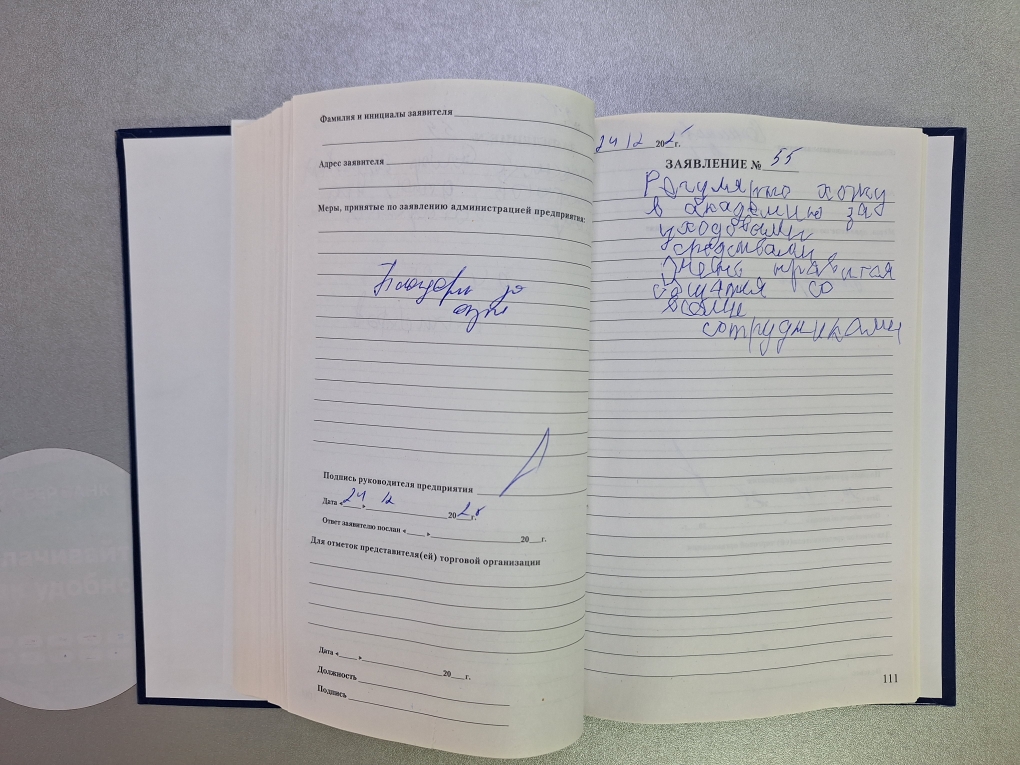 Фамилия и инициалы заявителя
Адрес заявителя
Меры, принятые по заявлению администрацией предприятия:
Благодарим за
Подпись руководителя предприятия
Дата « 24 » 12 2025 г.
Ответ заявителю послан « » 20 г.
Для отметок представителя(ей) торговой организации
Дата « » 20 г.
Должность
Подпись
24 12 2025 г.
ЗАЯВЛЕНИЕ № 55
Регулярно хожу
в академию за
уходовыми
средствами
Очень нравится
общатся со
всеми
сотрудниками
111